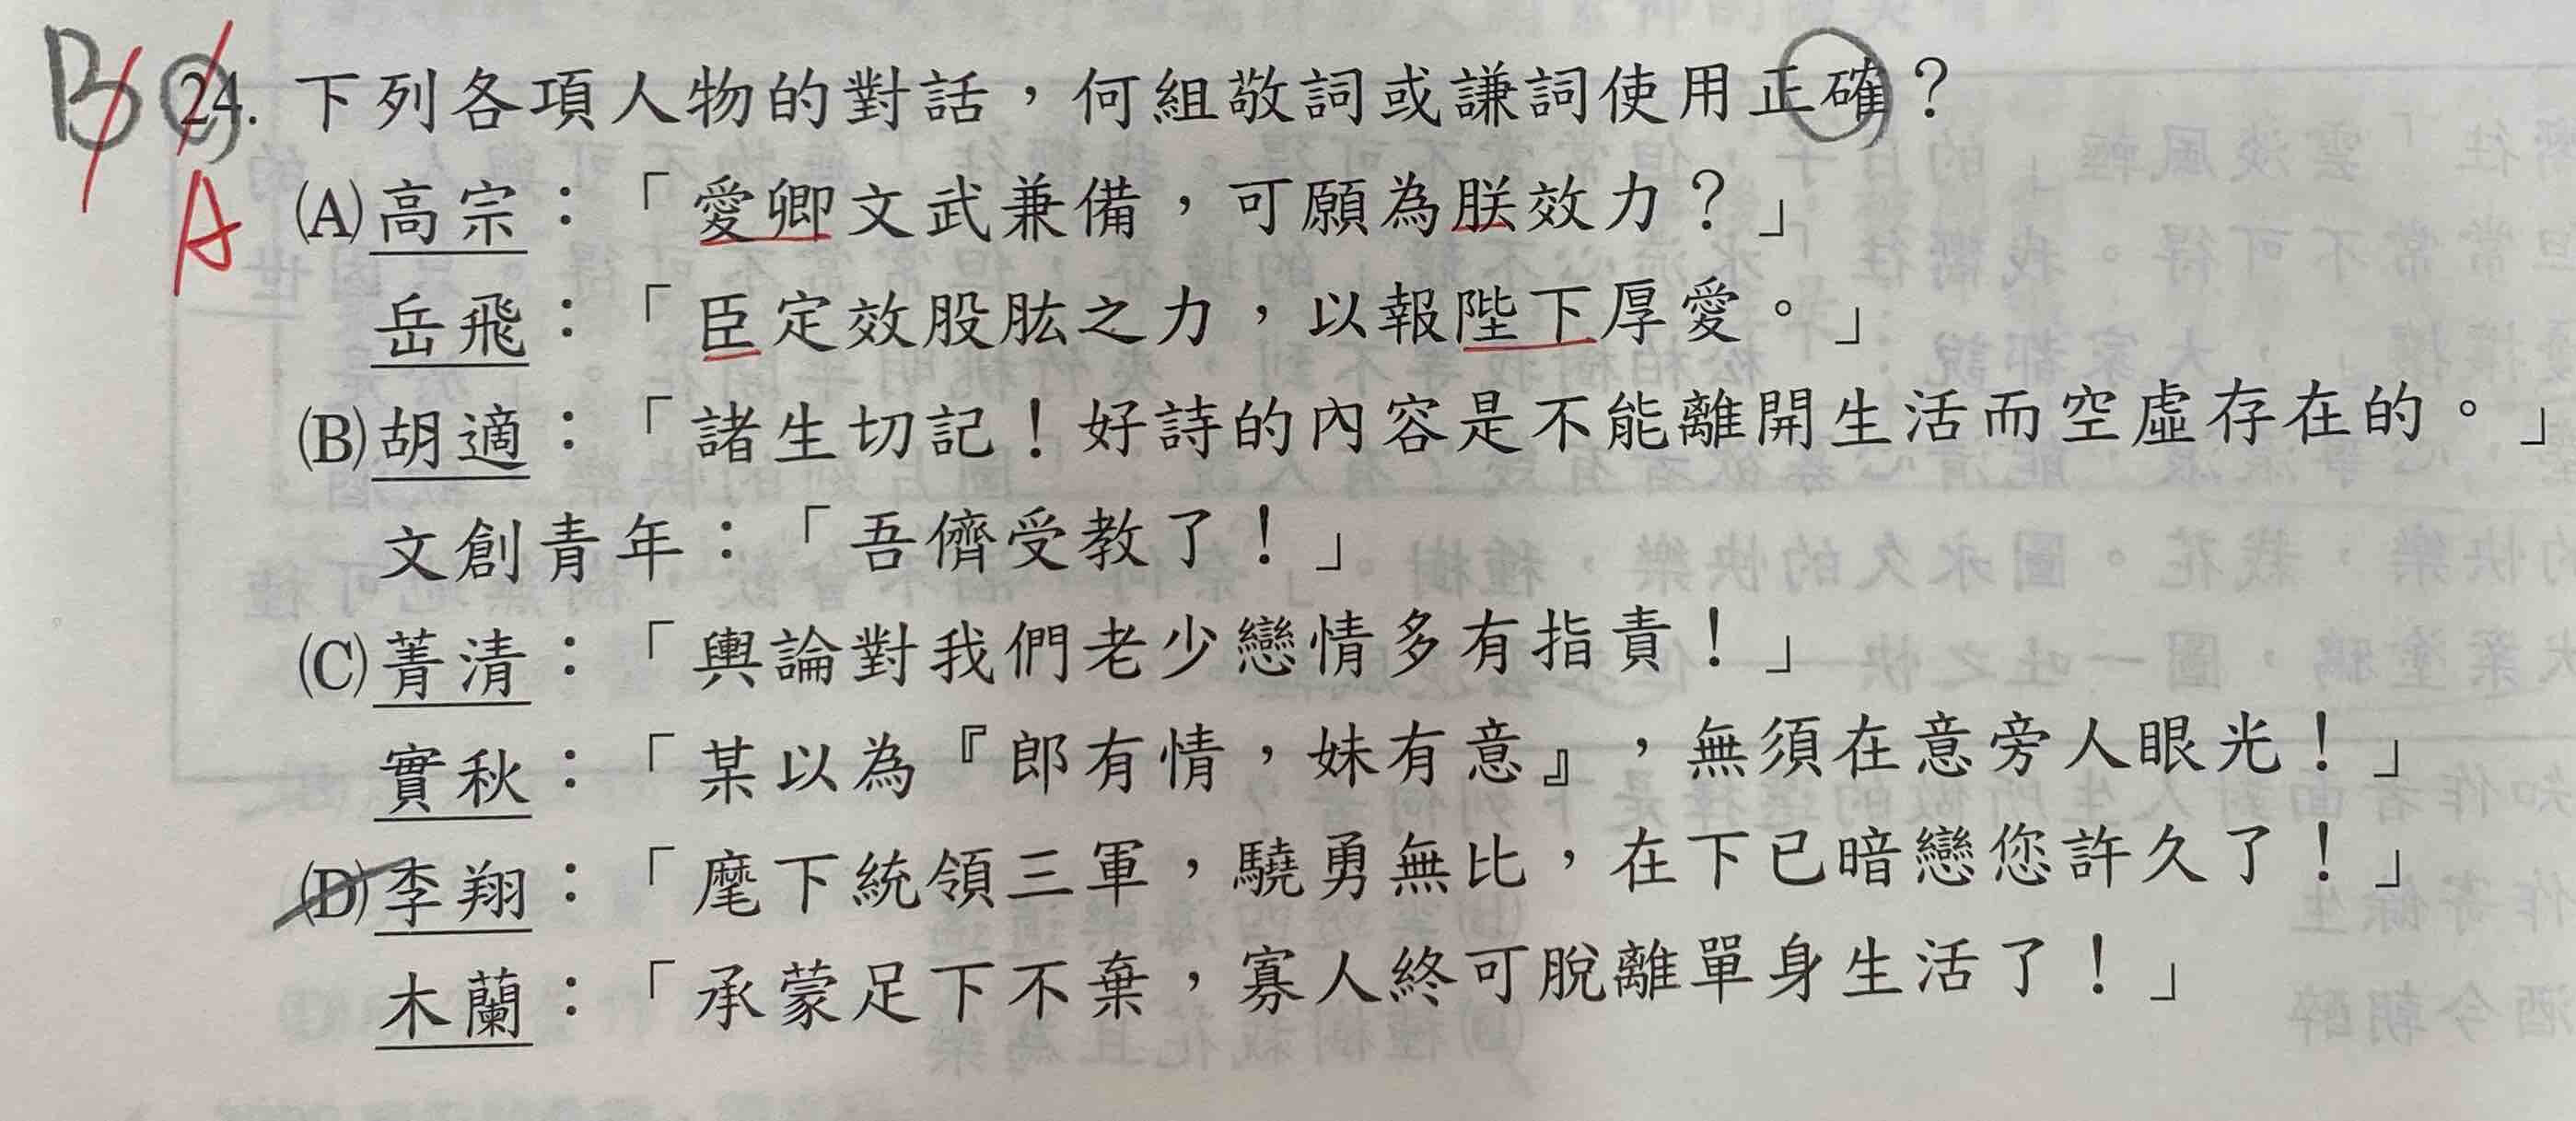 B 24. 下列各項人物的對話，何組敬詞或謙詞使用正確？
A (A)高宗：「愛卿文武兼備，可願為朕效力？」
岳飛：「臣定效股肱之力，以報陛下厚愛。」
(B)胡適：「諸生切記！好詩的內容是不能離開生活而空虛存在的。」
文創青年：「吾儕受教了！」
(C)菁清：「輿論對我們老少戀情多有指責！」
實秋：「某以為『郎有情，妹有意』，無須在意旁人眼光！」
(D)李翔：「麾下統領三軍，驍勇無比，在下已暗戀您許久了！」
木蘭：「承蒙足下不棄，寡人終可脫離單身生活了！」